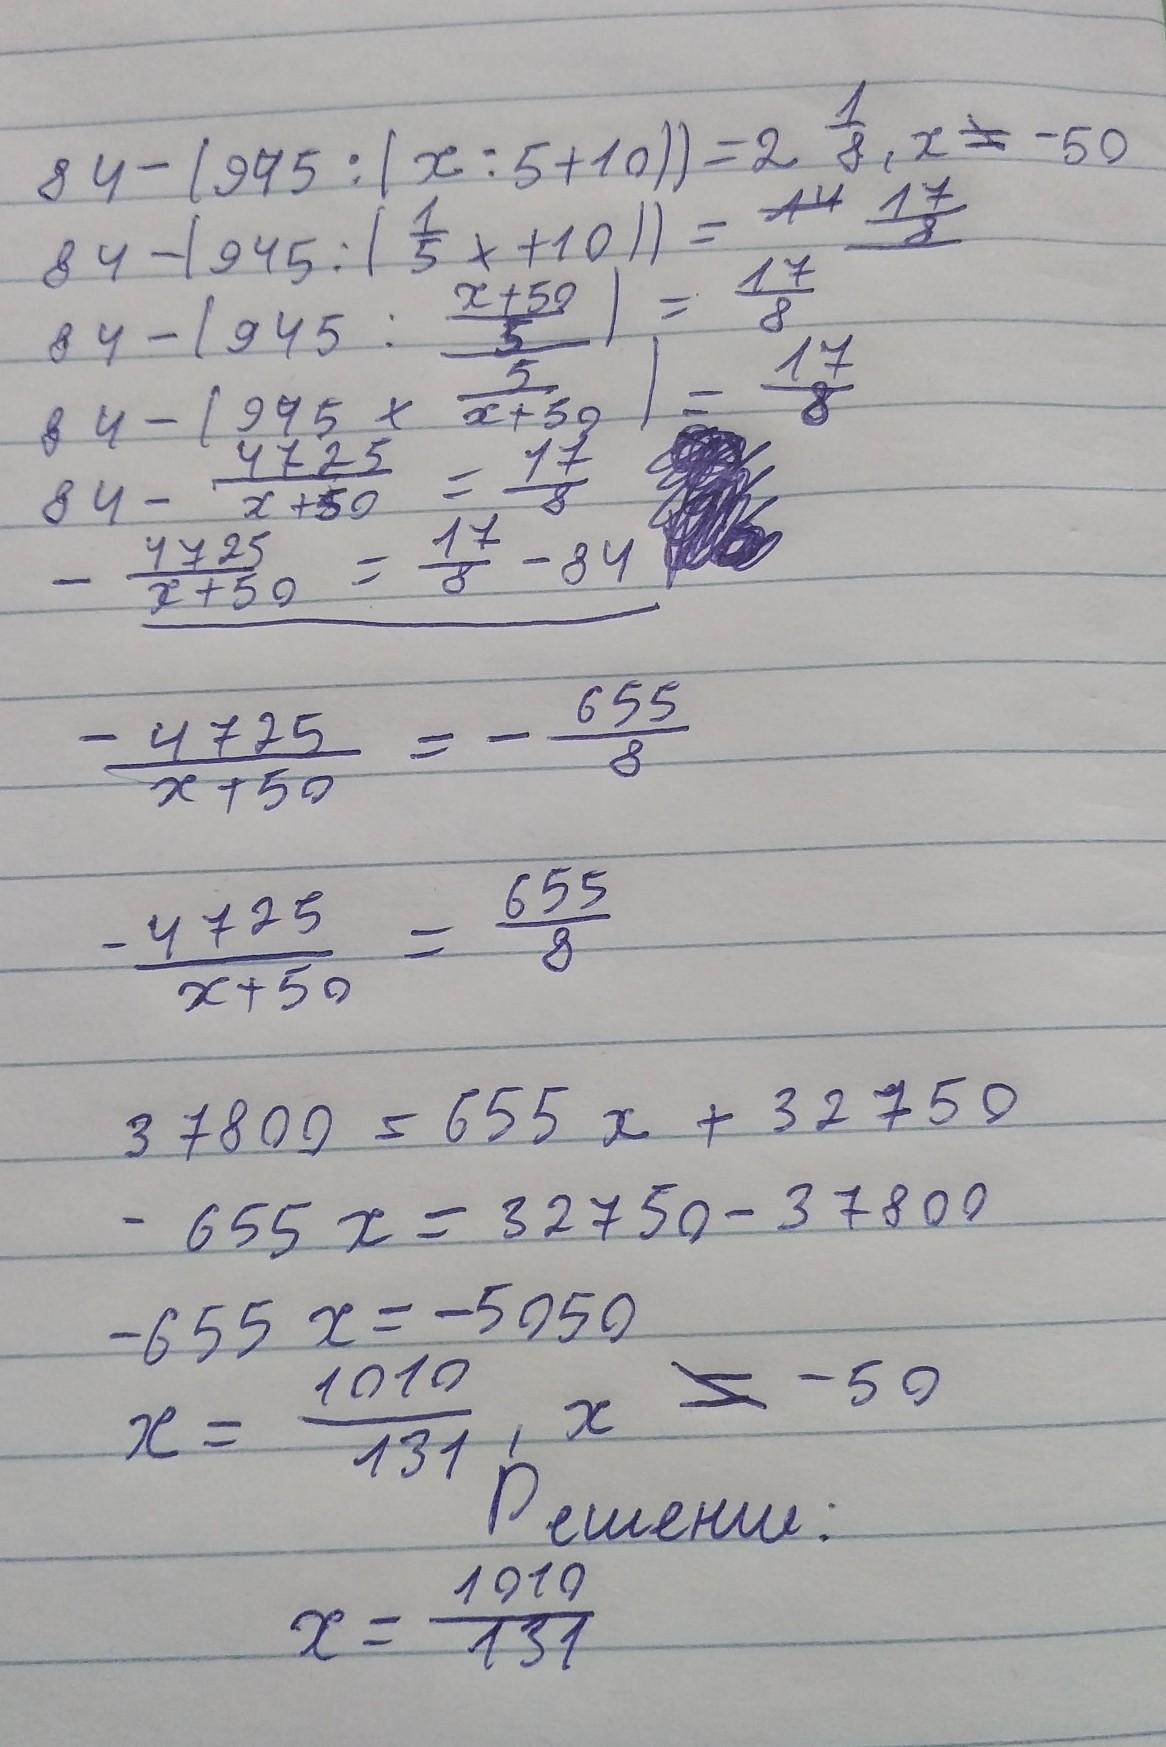 84-(945:(x:5+10))=2 1/8, x≠-50
84-(945:(1/5 x+10))= 17/8
84-(945: (x+50)/5) = 17/8
84-(945 × 5/(x+50)) = 17/8
84- 4725/(x+50) = 17/8
- 4725/(x+50) = 17/8 -84
- 4725/(x+50) = - 655/8
- 4725/(x+50) = 655/8
37800=655x+32750
-655x=32750-37800
-655x=-5050
x= 1010/131, x ≠ -50
Решение:
x= 1010/131